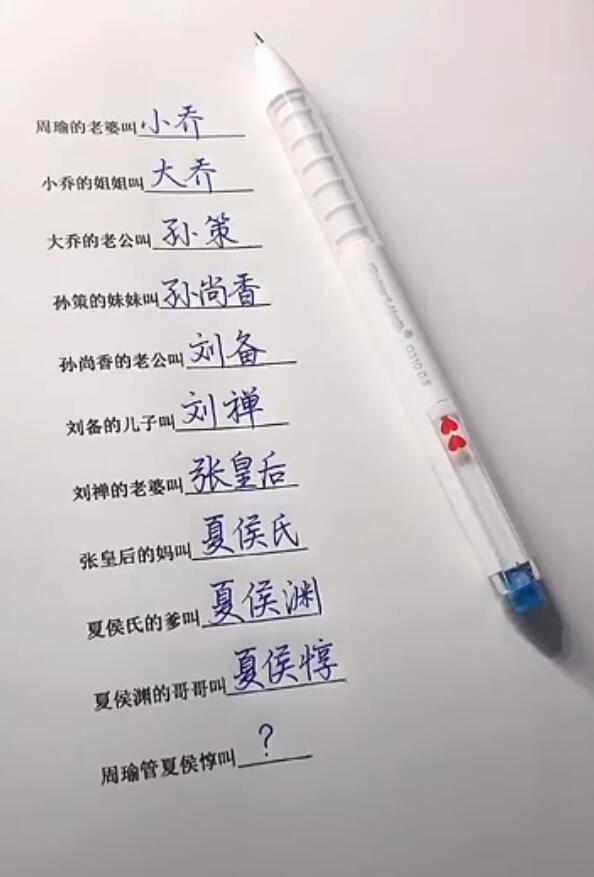 周瑜的老婆叫小乔
小乔的姐姐叫大乔
大乔的老公叫孙策
孙策的妹妹叫孙尚香
孙尚香的老公叫刘备
刘备的儿子叫刘禅
刘禅的老婆叫张皇后
张皇后的妈叫夏侯氏
夏侯氏的爹叫夏侯渊
夏侯渊的哥哥叫夏侯惇
周瑜管夏侯惇叫?